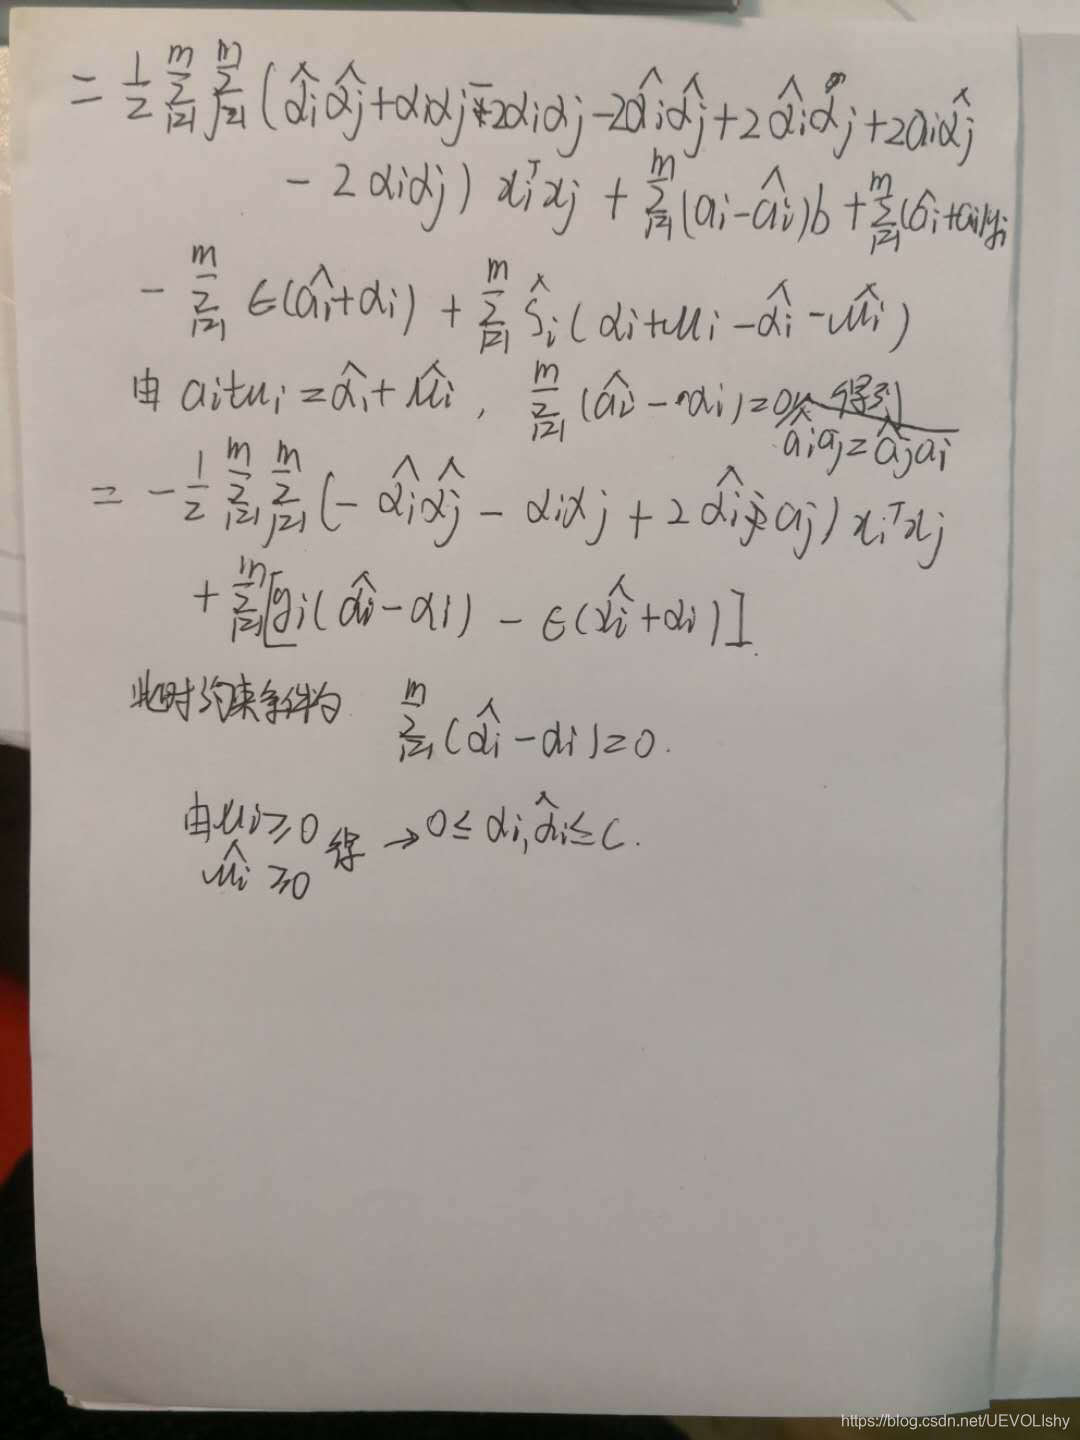 = 1/2 Σ_{i=1}^{m} Σ_{j=1}^{m} (α̂i α̂j + αiαj - 2αiαj - 2α̂i α̂j + 2α̂i αj + 2ai α̂j
- 2αiαj) xi^T xj + Σ_{i=1}^{m} (ai - âi)b + Σ_{i=1}^{m} (âi + ai)yi
- Σ_{i=1}^{m} ϵ(âi + αi) + Σ_{i=1}^{m} ξ̂i (αi + μi - α̂i - μ̂i)
由 ai + ui = α̂i + μ̂i , Σ_{i=1}^{m} (âi - αi) = 0 得到
âi aj = âj ai
= -1/2 Σ_{i=1}^{m} Σ_{j=1}^{m} (- α̂i α̂j - αiαj + 2 α̂i aj) xi^T xj
+ Σ_{i=1}^{m} [yi(α̂i - αi) - ϵ(α̂i + αi)]
此时约束条件为 Σ_{i=1}^{m} (α̂i - αi) = 0.
由 μi ≥ 0
μ̂i ≥ 0 得 → 0 ≤ αi, α̂i ≤ C.
https://blog.csdn.net/UEVOLIshy